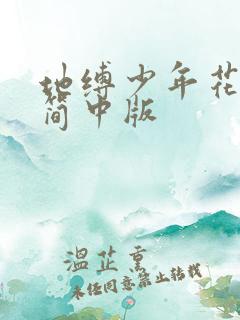 地缚少年花
简中版
温芷熏
未经同意禁止转载